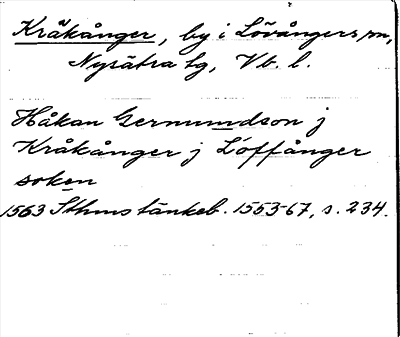 Kråkånger, by i Lövångers sn,
Nysätra tg, Vb. l.
Håkan Germundson j
Kråkånger j Löffånger
soken
1563 Sthms tänkeb. 1553-67, s. 234.